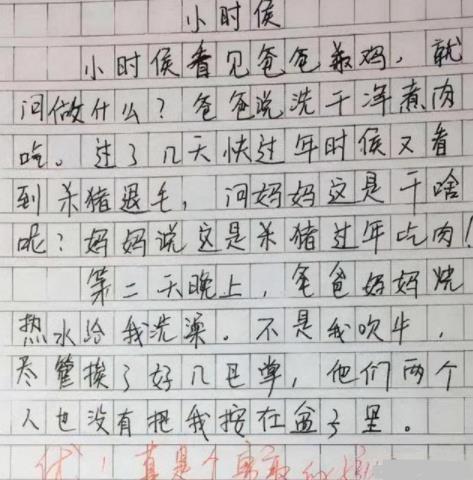 小时侯
小时侯看见爸爸杀鸡，就
问做什么？爸爸说洗干净煮肉
吃。过了几天快过年时侯又看
到杀猪退毛，问妈妈这是干啥
呢？妈妈说这是杀猪过年吃肉！
第二天晚上，爸爸妈妈烧
热水给我洗澡。不是我吹牛，
尽管挨了好几巴掌，他们两个
人也没有把我按在盆子里。
优！真是个勇敢的孩